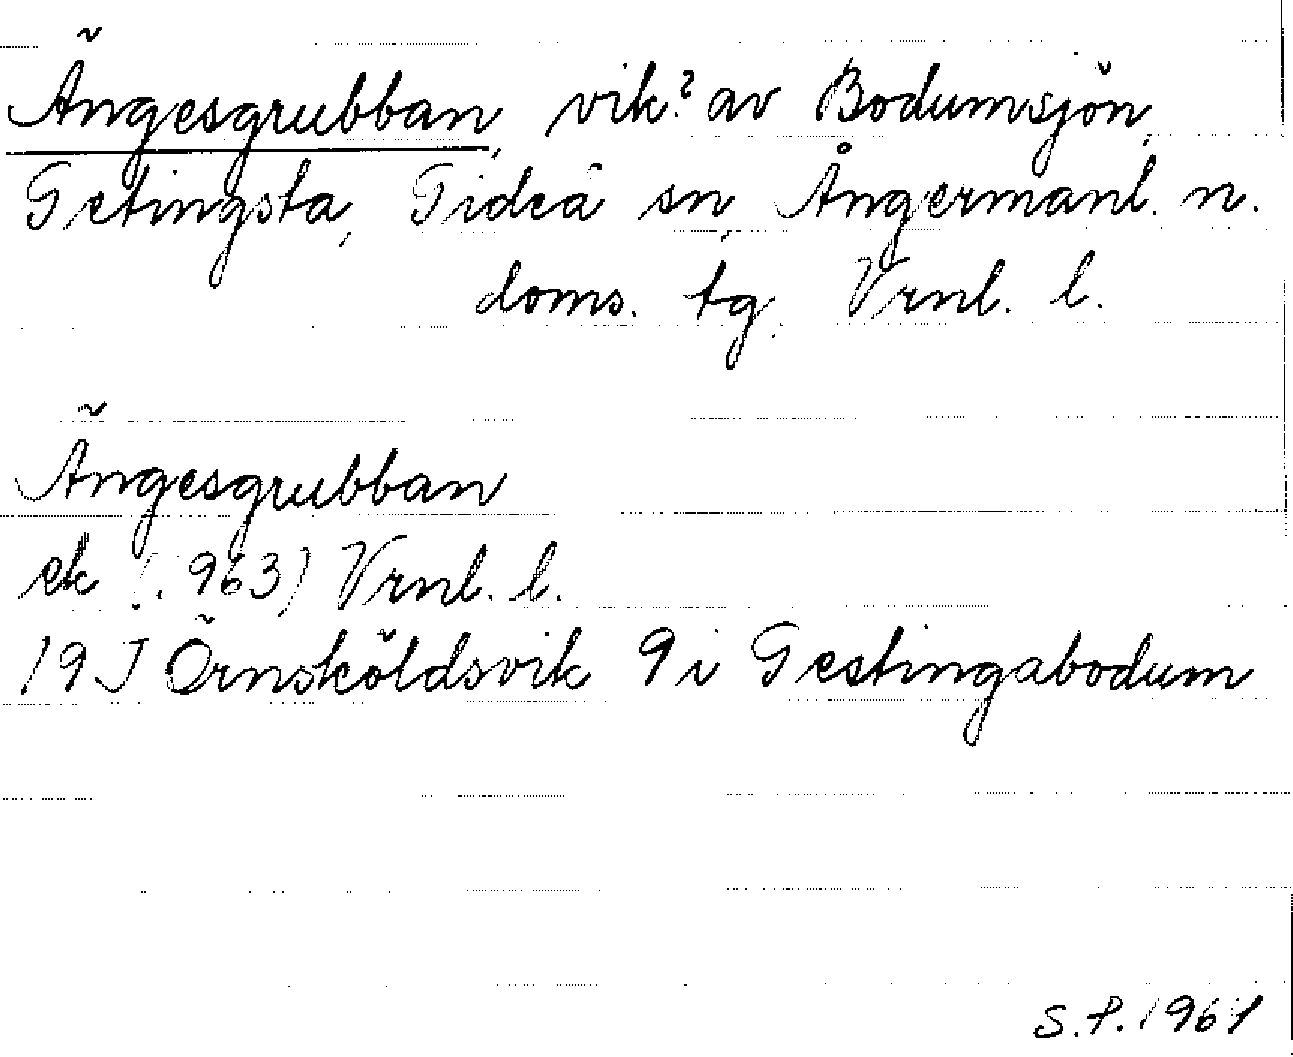 Ängesgrubban, vik? av Bodumsjön,
Getingsta, Gideå sn, Ångermanl. n.
doms. tg. Vrnl. l.
Ängesgrubban
ek (1963) Vrnl. l.
19 J Örnsköldsvik 9 i Gestingabodum
S.P. 1967